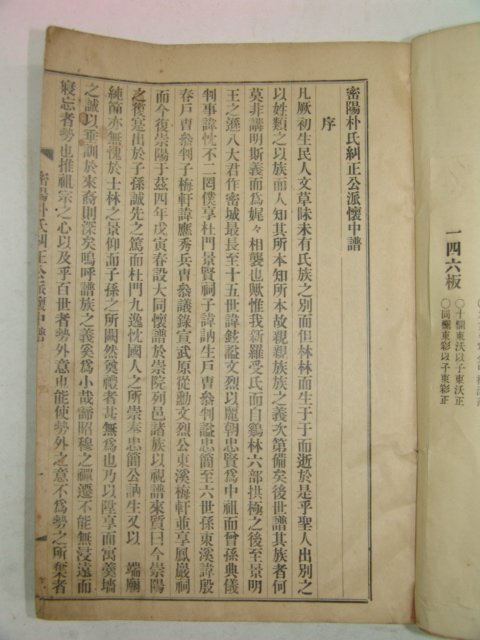 密陽朴氏糾正公派懷中譜
序
凡厥初生民人文草昧未有氏族之別而但林林而生于于而逝於是乎聖人出別之
以姓類之以族而人知其所本知所本故親親族族之義次第備矣後世譜其族者何
莫非講明斯義而爲娓々相襲也歟惟我新羅受氏而自鷄林六部拱極之後至景明
王之遜八大君作密城最長至十五世諱鉉諡文烈以麗朝忠賢爲中祖而曾孫典儀
判事諱忱不二罔僕享杜門景賢祠子諱訥生戶曺參判諡忠簡至六世孫東溪諱殷
春戶曺參判子梅軒諱應秀兵曺參議錄宣武原從勳文烈公東溪梅軒並享鳳巖祠
而今復崇陽于玆四年戊寅春設大同懷譜於崇院列邑諸族以視譜來質曰今崇陽
之復寔出於子孫誠先之篤而杜門九逸忱國人之所崇奉忠簡公訥生又以 端廟
練節亦無愧於士林之景仰而子孫之所闕然奠禮者甚無爲也乃以陞享而寓羹墻
之誠以垂訓於來裔則深矣嗚呼譜族之義奚爲小哉第昭穆之禪遷不能無寖遠而
寢忘者勢也推祖宗之心以及乎百世者勢外意也能使勢外之意不爲勢之所棄者
密陽朴氏糾正公派懷中譜
一四六板
○十欄東沃以子東沃正
○同欄東彩以子東彩正